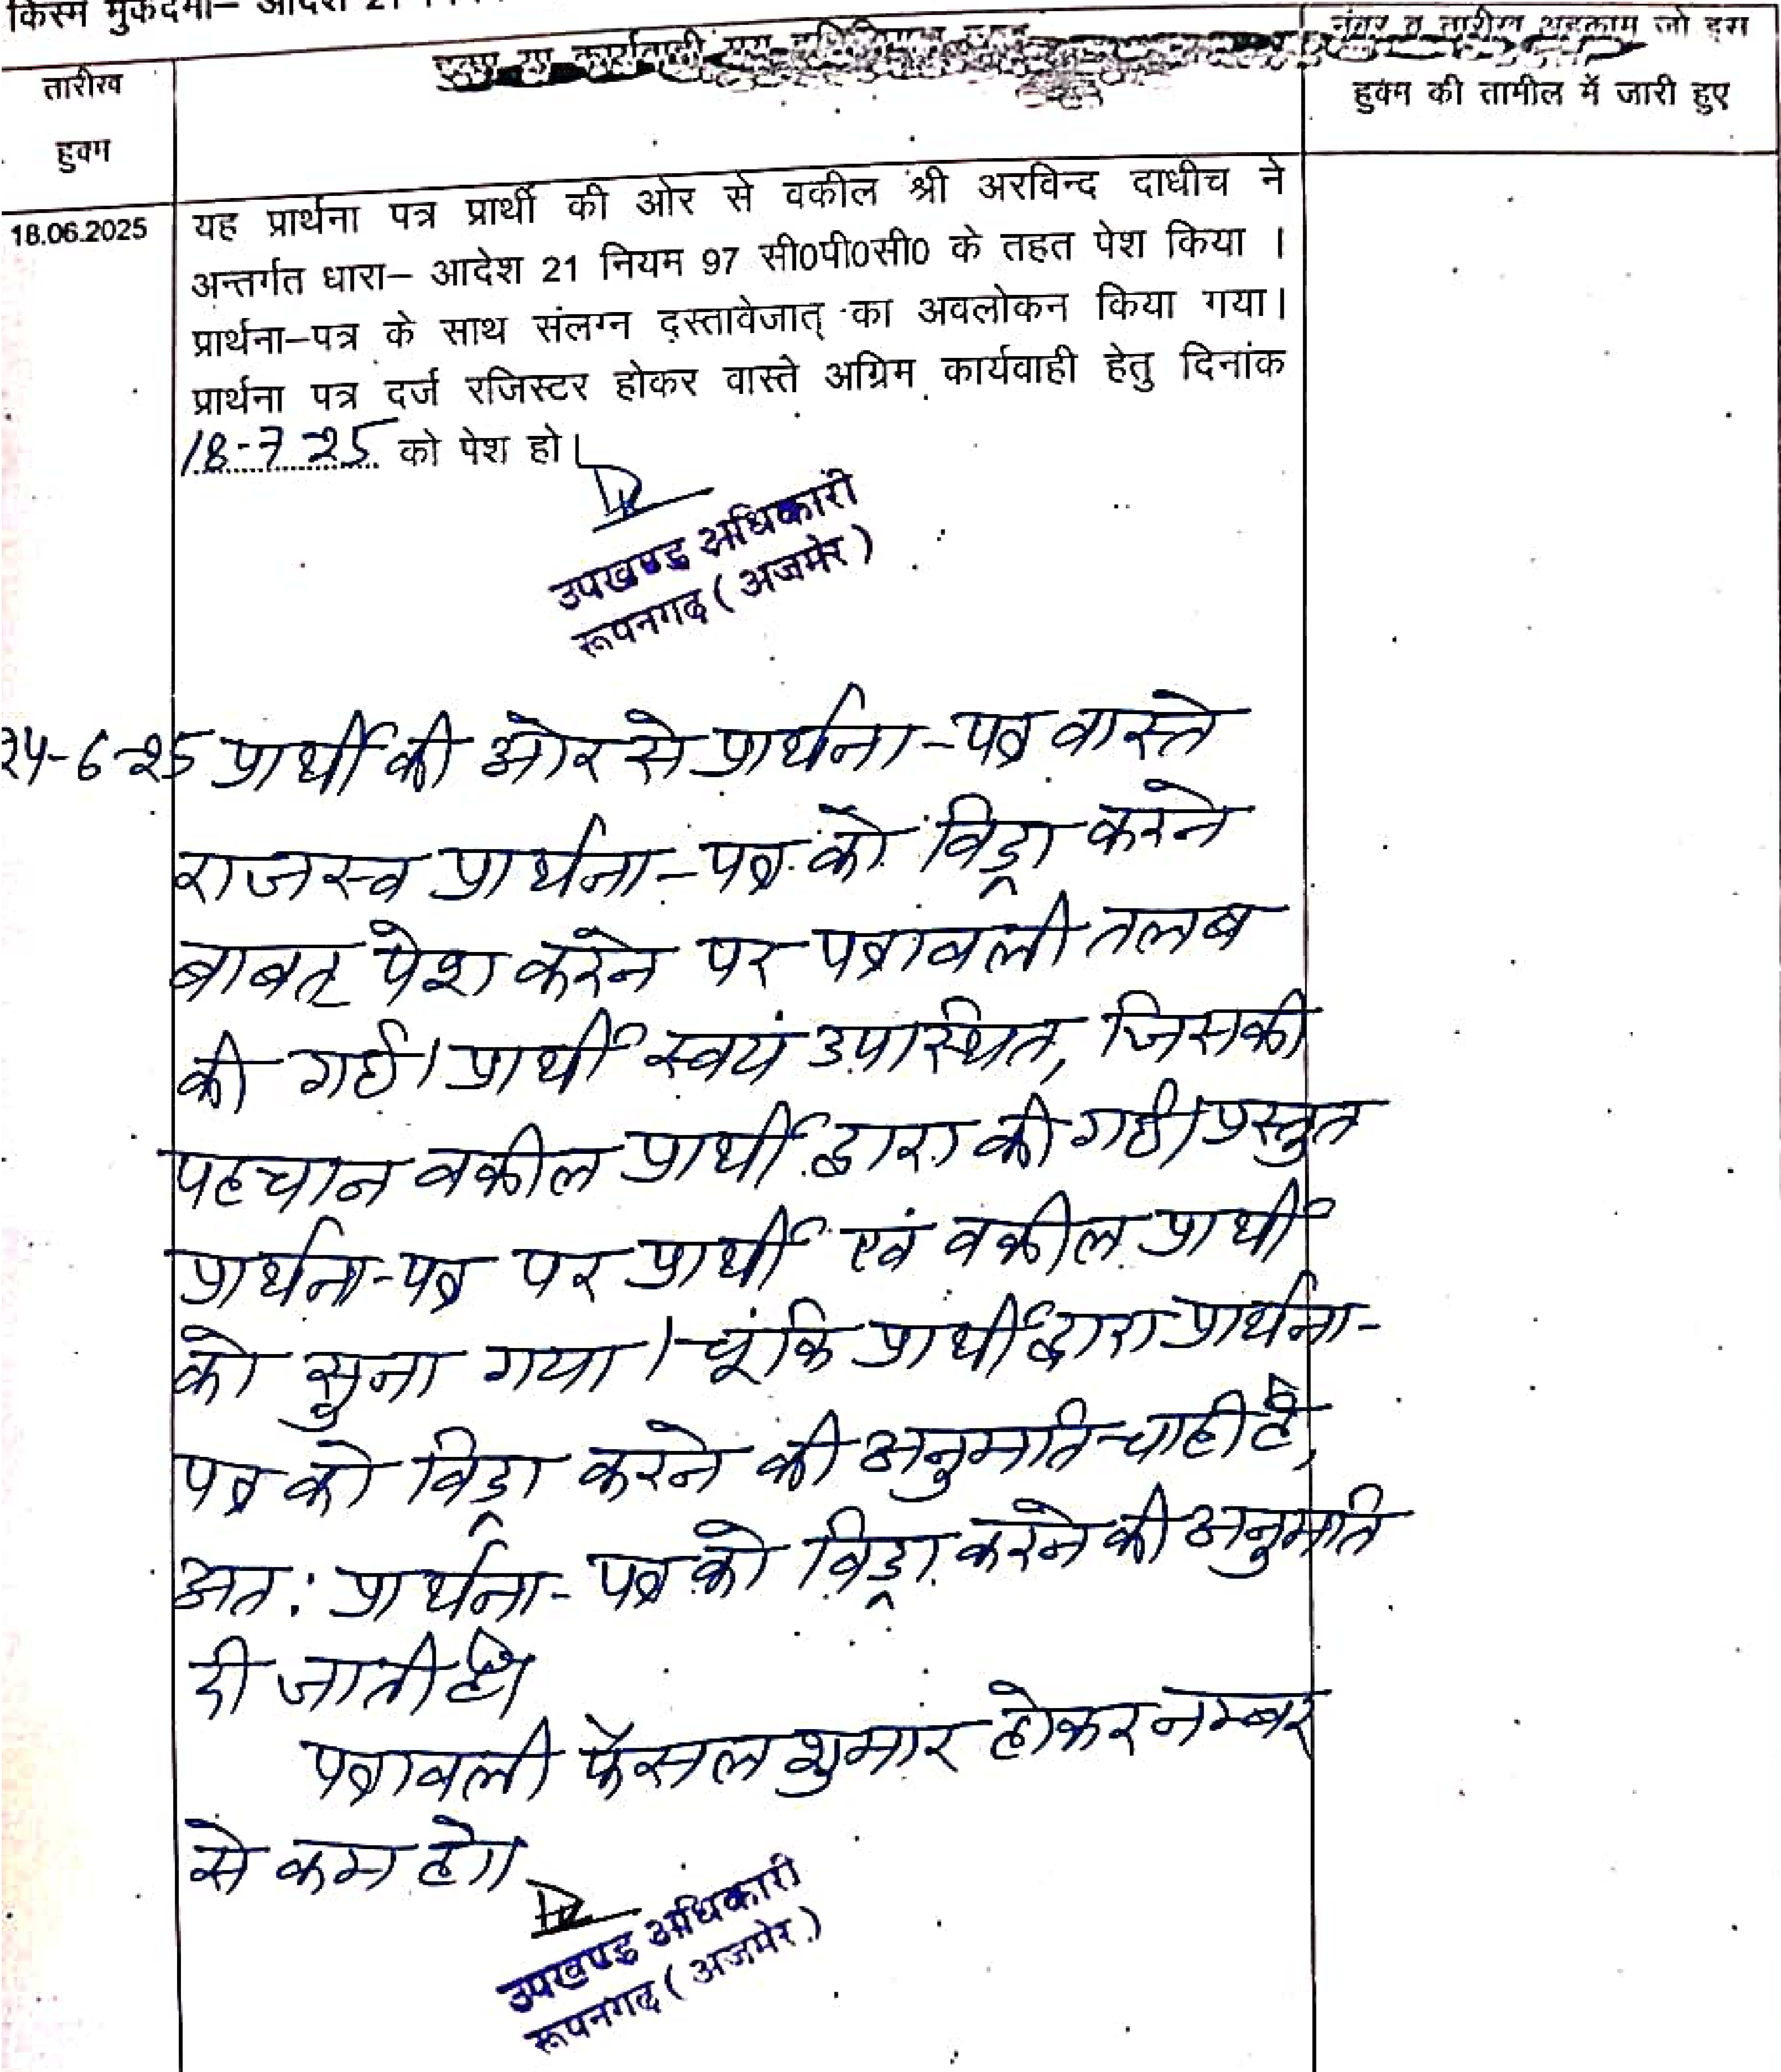 किस्म मुकदमा– आदेश 21
तारीख
हुक्म
नंबर व तारीख अहकाम जो इस
हुक्म की तामील में जारी हुए
18.06.2025
यह प्रार्थना पत्र प्रार्थी की ओर से वकील श्री अरविन्द दाधीच ने
अन्तर्गत धारा– आदेश 21 नियम 97 सी0पी0सी0 के तहत पेश किया ।
प्रार्थना–पत्र के साथ संलग्न दस्तावेजात् का अवलोकन किया गया।
प्रार्थना पत्र दर्ज रजिस्टर होकर वास्ते अग्रिम कार्यवाही हेतु दिनांक
18-7-25 को पेश हो।
उपखण्ड अधिकारी
रूपनगढ़ (अजमेर)
24-6-25 प्रार्थी की ओर से प्रार्थना-पत्र वास्ते
राजस्व प्रार्थना-पत्र को विड्रा करने
बाबत् पेश करने पर पत्रावली तलब
की गई। प्रार्थी स्वयं उपस्थित, जिसकी
पहचान वकील प्रार्थी द्वारा की गई। प्रस्तुत
प्रार्थना-पत्र पर प्रार्थी एवं वकील प्रार्थी
को सुना गया। चूंकि प्रार्थी द्वारा प्रार्थना-
पत्र को विड्रा करने की अनुमति चाही है,
अत: प्रार्थना-पत्र को विड्रा करने की अनुमति
दी जाती है।
पत्रावली फैसल शुमार होकर नम्बर
से कम हो।
उपखण्ड अधिकारी
रूपनगढ़ (अजमेर)